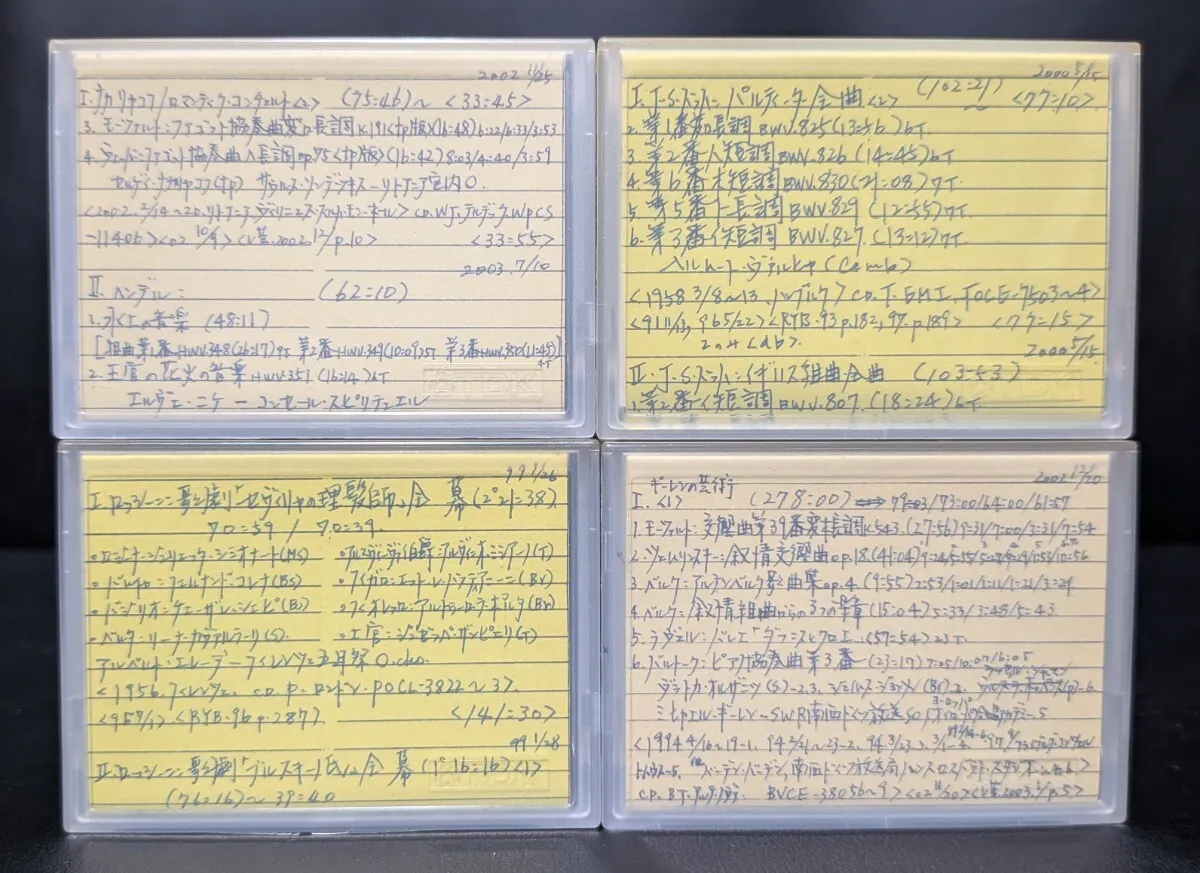 2002 11/25
I. ナカリャコフ/ロマンティック・コンチェルト<2> (75:46)〜 <33:45>
3. モーツァルト:ファゴット協奏曲変ロ長調K.191<tp版>(16:48)6:22/6:33/3:53
4. ヴェーバー:ファゴット協奏曲ヘ長調op.75<tp版>(16:42)8:03/4:40/3:59
セルゲイ・ナカリャコフ(tp) サウルス・ソンデツキス―リトアニア室内O.
<2002.2/14〜20.リトアニア、 CD.WJ.テルデック WPCS
-11405><02 10/9><V芸.2002.12/p.10> <33:55>
2003.7/10
II. ヘンデル: (62:10)
1. 水上の音楽 (48:11)
[組曲第1番HWV.348(26:17)9T 第2番HWV.349(10:09)5T 第3番HWV.350(11:45)4T]
2. 王宮の花火の音楽HWV.351 (16:14)6T
エルヴェ・ニケ―コンセール・スピリテュエル
TDK
2000 5/15
I. J・S・バッハ:パルティータ全曲<2> (102:21) <77:10>
2. 第1番変ロ長調BWV.825(13:56)6T.
3. 第2番ハ短調BWV.826(14:45)6T
4. 第6番ホ短調BWV.830(21:08)7T.
5. 第5番ト長調BWV.829(12:55)7T
6. 第3番イ短調BWV.827.(13:12)7T.
ヘルムート・ヴァルヒャ(Cemb)
<1958 3/8〜13.ハンブルク> CD.T.EMI.TOCE-7503〜4>
<91 11/13, 96 5/22><RYB.93 p.182, 97.p.189> <77:15>
2000 5/15
II. J・S・バッハ:イギリス組曲全曲 (103:53)
1. 第2番イ短調BWV.807.(18:24)6T.
TDK
99 1/26
I. ロッシーニ:歌劇「セヴィリャの理髪師」全 幕(2°21:38).
70:59 / 70:39.
•ロジーナ:ジュリエッタ・シミオナート(MS) •アルマヴィーヴァ伯爵:アルヴィニオ・ミシアーノ(T)
•バルトロ:フェルナンド・コレナ(BS) •フィガロ:エットレ・バスティアニーニ(Br)
•バジリオ:チェーザレ・シエピ(BS) •フィオレッロ:アルトゥーロ・ラ・ポルタ(Br)
•ベルタ:リーナ・カヴァルラーリ(S). •士官:ジュゼッペ・ザンピエーリ(T)
アルベルト・エレーデ―フィレンツェ五月祭O.cho.
<1956.フィレンツェ. CD.P.ロンドン.POCL-3822〜3>.
<RYB.96 p.287>. <141:30>
99 1/28
II. ロッシーニ:歌劇「ブルスキーノ氏」全 幕(1°16:16)<1>
(76:16)〜 39:40
TDK
2002 12/20
ギーレンの芸術
I. <1> (278:00) ⟺ 79:03/73:00/64:00/61:57
1. モーツァルト:交響曲第39番変ホ長調K.543.(27:56)9:31/7:00/3:31/7:54
2. ツェムリンスキー:叙情交響曲op.18(41:04)
3. ベルク:アルテンベルク歌曲集op.4(9:55)2:53/1:01/1:11/1:21/3:29
4. ベルク:叙情組曲からの3つの楽章(15:04)5:33/3:48/5:43
5. ラヴェル:バレエ「ダフニスとクロエ」(57:54)23T
6. バルトーク:ピアノ協奏曲第3番(23:17)7:05/10:07/6:05
ヴラトカ・オルザニッツ(S)―2,3.ジェイムズ・ジョンソン(Br).2.
ミヒャエル・ギーレン―SWR南西ドイツ放送SO.
バーデン・バーデン、南西ドイツ放送局ハンス・ロスバウト・スタジオ
BVCE-38056〜9> <V芸2003.1/p.5>